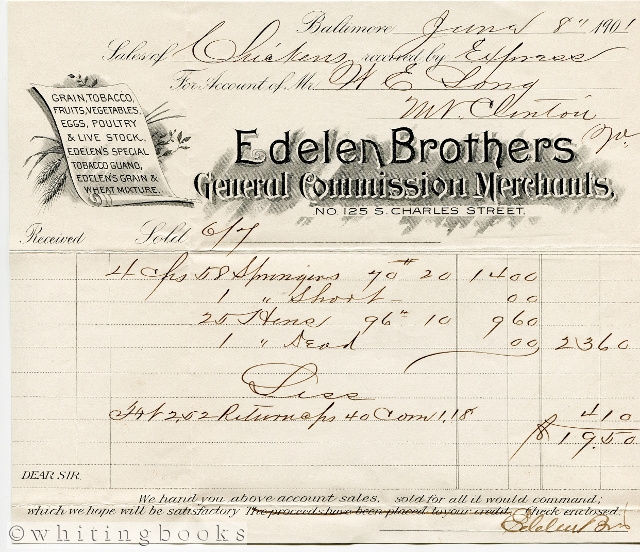 Baltimore June 8" 1901
Sales of Chickens received by Express
For Account of Mr. W E Long
Mt. Clinton
Va.
GRAIN, TOBACCO,
FRUITS, VEGETABLES,
EGGS, POULTRY
& LIVE STOCK.
EDELEN'S SPECIAL
TOBACCO GUANO,
EDELEN'S GRAIN &
WHEAT MIXTURE.
Edelen Brothers
General Commission Merchants,
NO. 125 S. CHARLES STREET.
Received Sold 6/7
4 Cps 58 Springers 70# 20 1400
1 " Short 00
25 Hens 96# 10 960
1 " Dead 00 2360
Less
Frt 2.52 Return cps 40 Com 1.18 410
$19.50
DEAR SIR.
We hand you above account sales, sold for all it would command;
which we hope will be satisfactory The proceeds have been placed to your credit. Check enclosed.
Edelen Bros
©whitingbooks